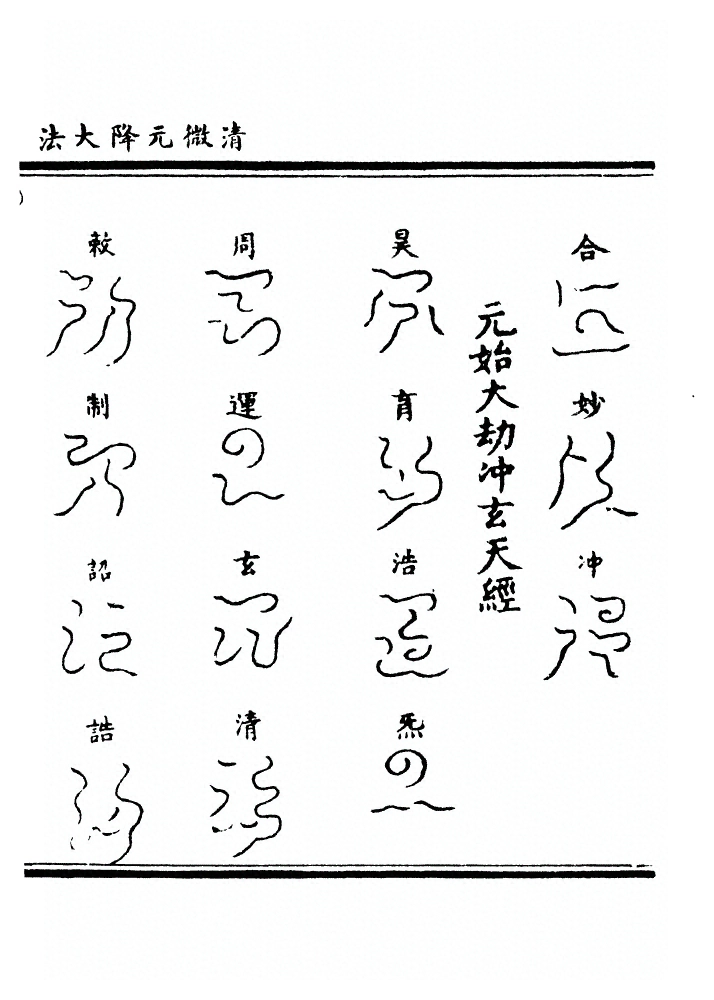 清微元降大法
合妙冲
元始大劫冲玄天經
昊育浩炁
周運玄清
敕制詔誥